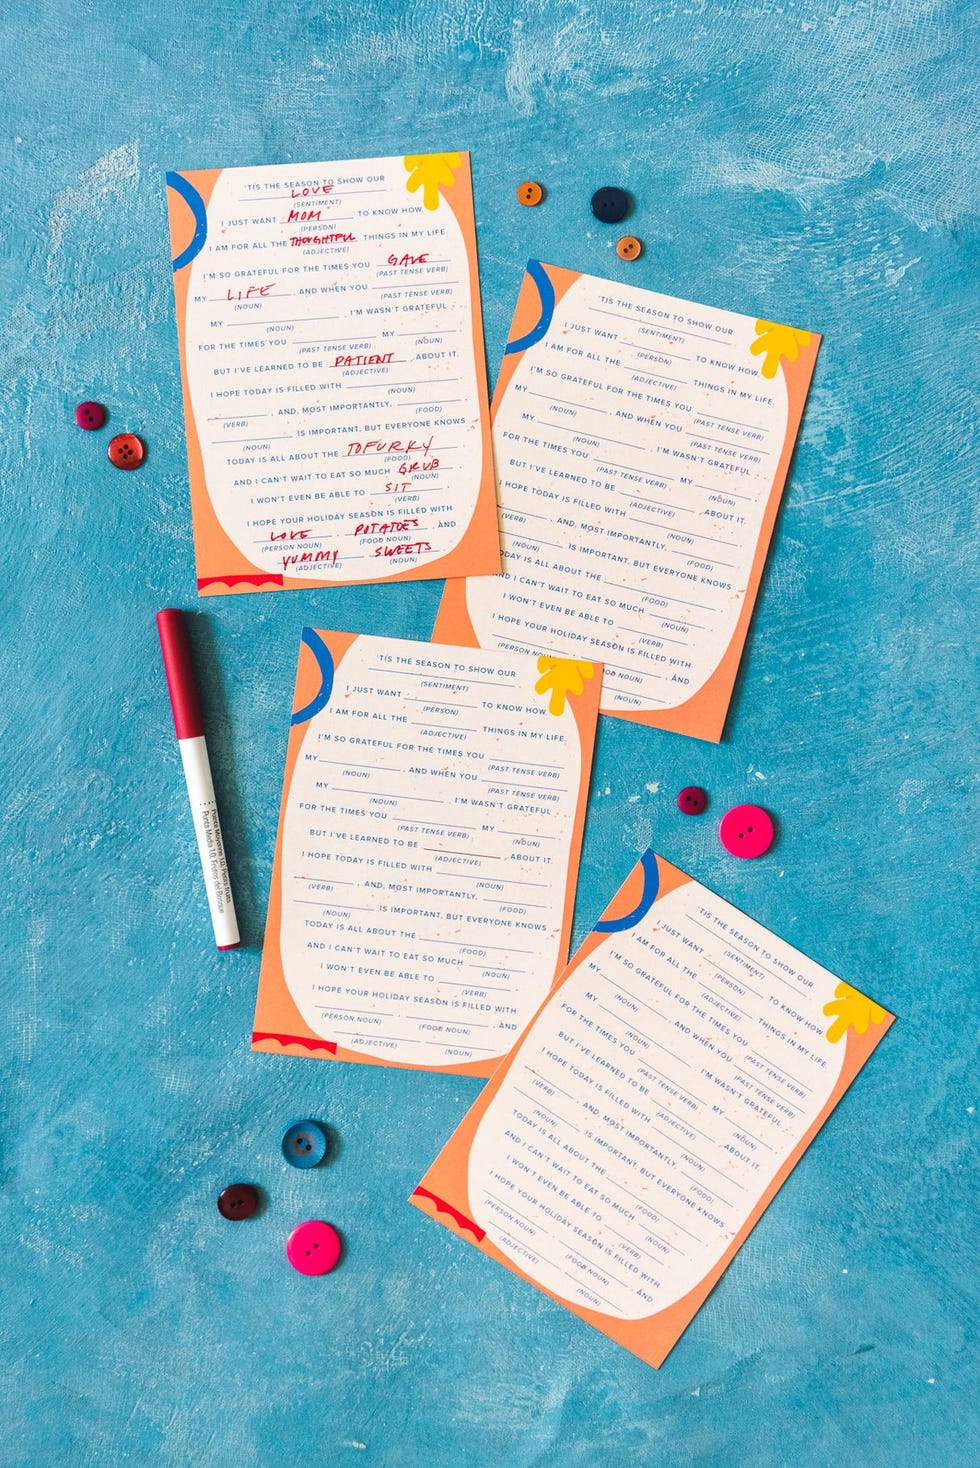 'TIS THE SEASON TO SHOW OUR
LOVE
(SENTIMENT)
I JUST WANT MOM TO KNOW HOW
(PERSON)
I AM FOR ALL THE THOUGHTFUL THINGS IN MY LIFE.
(ADJECTIVE)
I'M SO GRATEFUL FOR THE TIMES YOU GAVE
(PAST TENSE VERB)
MY LIFE, AND WHEN YOU
(NOUN) (PAST TENSE VERB)
MY . I'M WASN'T GRATEFUL
(NOUN)
FOR THE TIMES YOU MY
(PAST TENSE VERB) (NOUN)
BUT I'VE LEARNED TO BE PATIENT ABOUT IT.
(ADJECTIVE)
I HOPE TODAY IS FILLED WITH
(NOUN)
, AND, MOST IMPORTANTLY, .
(VERB) (FOOD)
IS IMPORTANT, BUT EVERYONE KNOWS
(NOUN)
TODAY IS ALL ABOUT THE TOFURKY
(FOOD)
AND I CAN'T WAIT TO EAT SO MUCH GRUB
(NOUN)
I WON'T EVEN BE ABLE TO SIT.
(VERB)
I HOPE YOUR HOLIDAY SEASON IS FILLED WITH
LOVE, POTATOES, AND
(PERSON NOUN) (FOOD NOUN)
YUMMY SWEETS.
(ADJECTIVE) (NOUN)
'TIS THE SEASON TO SHOW OUR
(SENTIMENT)
I JUST WANT TO KNOW HOW
(PERSON)
I AM FOR ALL THE THINGS IN MY LIFE.
(ADJECTIVE)
I'M SO GRATEFUL FOR THE TIMES YOU
(PAST TENSE VERB)
MY , AND WHEN YOU
(NOUN) (PAST TENSE VERB)
MY . I'M WASN'T GRATEFUL
(NOUN)
FOR THE TIMES YOU MY
(PAST TENSE VERB) (NOUN)
BUT I'VE LEARNED TO BE ABOUT IT.
(ADJECTIVE)
I HOPE TODAY IS FILLED WITH
(NOUN)
, AND, MOST IMPORTANTLY, .
VERB) (FOOD)
IS IMPORTANT, BUT EVERYONE KNOWS
NOUN)
ODAY IS ALL ABOUT THE
(FOOD)
ND I CAN'T WAIT TO EAT SO MUCH
(NOUN)
I WON'T EVEN BE ABLE TO .
(VERB)
I HOPE YOUR HOLIDAY SEASON IS FILLED WITH
, AND
(PERSON NOUN OD NOUN)
(NOUN)
'TIS THE SEASON TO SHOW OUR
(SENTIMENT)
I JUST WANT TO KNOW HOW
(PERSON)
I AM FOR ALL THE THINGS IN MY LIFE.
(ADJECTIVE)
I'M SO GRATEFUL FOR THE TIMES YOU
(PAST TENSE VERB)
MY , AND WHEN YOU
(NOUN) (PAST TENSE VERB)
MY . I'M WASN'T GRATEFUL
(NOUN)
FOR THE TIMES YOU MY
(PAST TENSE VERB) (NOUN)
BUT I'VE LEARNED TO BE ABOUT IT.
(ADJECTIVE)
I HOPE TODAY IS FILLED WITH
(NOUN)
, AND, MOST IMPORTANTLY, .
(VERB) (FOOD)
IS IMPORTANT, BUT EVERYONE KNOWS
(NOUN)
TODAY IS ALL ABOUT THE
(FOOD)
AND I CAN'T WAIT TO EAT SO MUCH
(NOUN)
I WON'T EVEN BE ABLE TO .
(VERB)
I HOPE YOUR HOLIDAY SEASON IS FILLED WITH
, , AND
(PERSON NOUN) (FOOD NOUN)
(ADJECTIVE) (NOUN)
Pointe Moyenne 1.0. Petits fruits
Punta Media 1.0. Frutos del Bosque
'TIS THE SEASON TO SHOW OUR
(SENTIMENT)
I JUST WANT TO KNOW HOW
(PERSON)
I AM FOR ALL THE THINGS IN MY LIFE.
(ADJECTIVE)
I'M SO GRATEFUL FOR THE TIMES YOU
(PAST TENSE VERB)
MY , AND WHEN YOU
(NOUN) (PAST TENSE VERB)
MY . I'M WASN'T GRATEFUL
(NOUN)
FOR THE TIMES YOU MY
(PAST TENSE VERB) (NOUN)
BUT I'VE LEARNED TO BE ABOUT IT.
(ADJECTIVE)
I HOPE TODAY IS FILLED WITH
(NOUN)
, AND, MOST IMPORTANTLY, .
(VERB) (FOOD)
IS IMPORTANT, BUT EVERYONE KNOWS
(NOUN)
TODAY IS ALL ABOUT THE
(FOOD)
AND I CAN'T WAIT TO EAT SO MUCH
(NOUN)
I WON'T EVEN BE ABLE TO .
(VERB)
I HOPE YOUR HOLIDAY SEASON IS FILLED WITH
, , AND
(PERSON NOUN) (FOOD NOUN)
(ADJECTIVE) (NOUN)